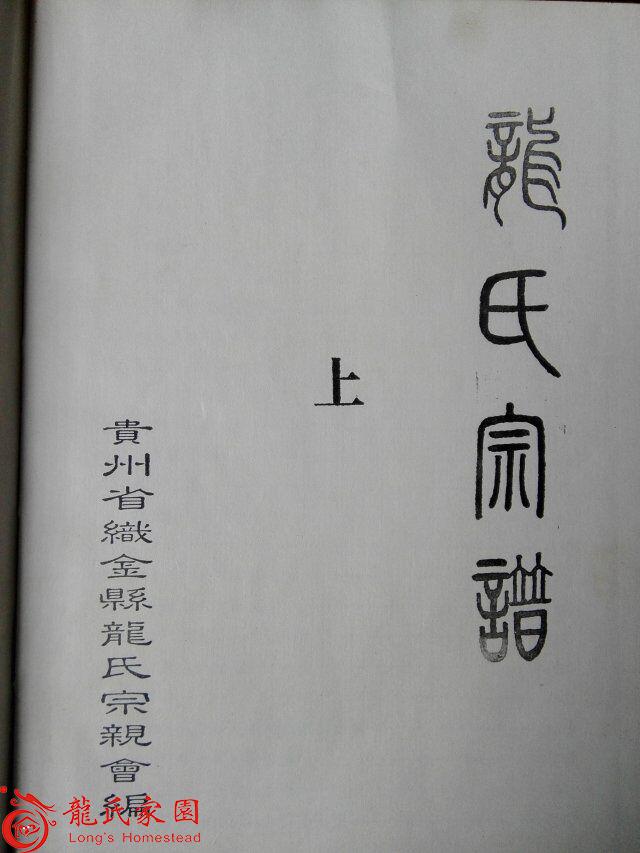 龍氏宗譜
上
貴州省織金縣龍氏宗親會編
龍氏家園
Long's Homestead